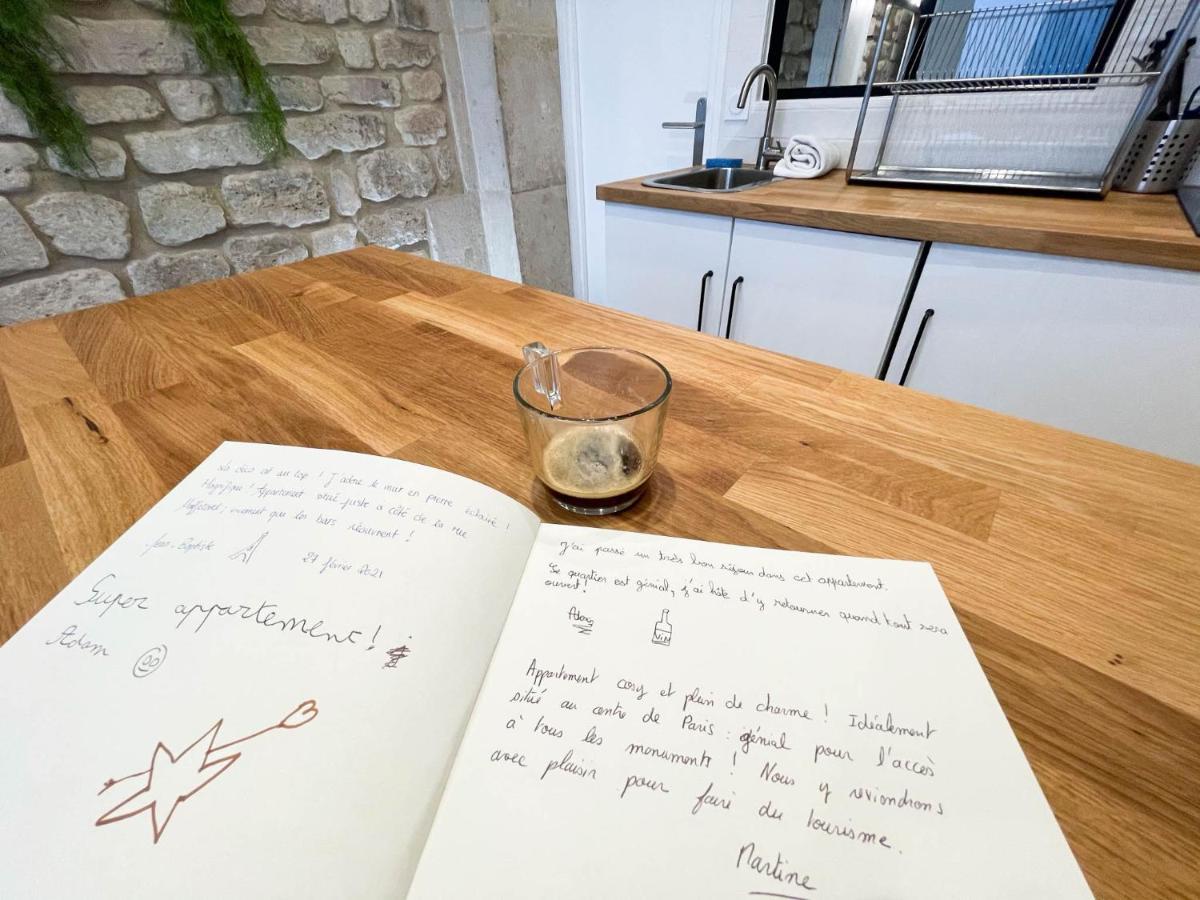 La déco est au top ! J'adore le mur en pierre éclairé !
Magnifique ! Appartement situé juste à côté de la rue
vivement que les bars réouvrent !
Jean-Baptiste
27 février 2021
Super appartement !
Adam
J'ai passé un très bon séjour dans cet appartement.
Le quartier est génial, j'ai hâte d'y retourner quand tout sera
ouvert !
VIN
Appartement cosy et plein de charme ! Idéalement
situé au centre de Paris : génial pour l'accès
à tous les monuments ! Nous y reviendrons
avec plaisir pour faire du tourisme.
Martine